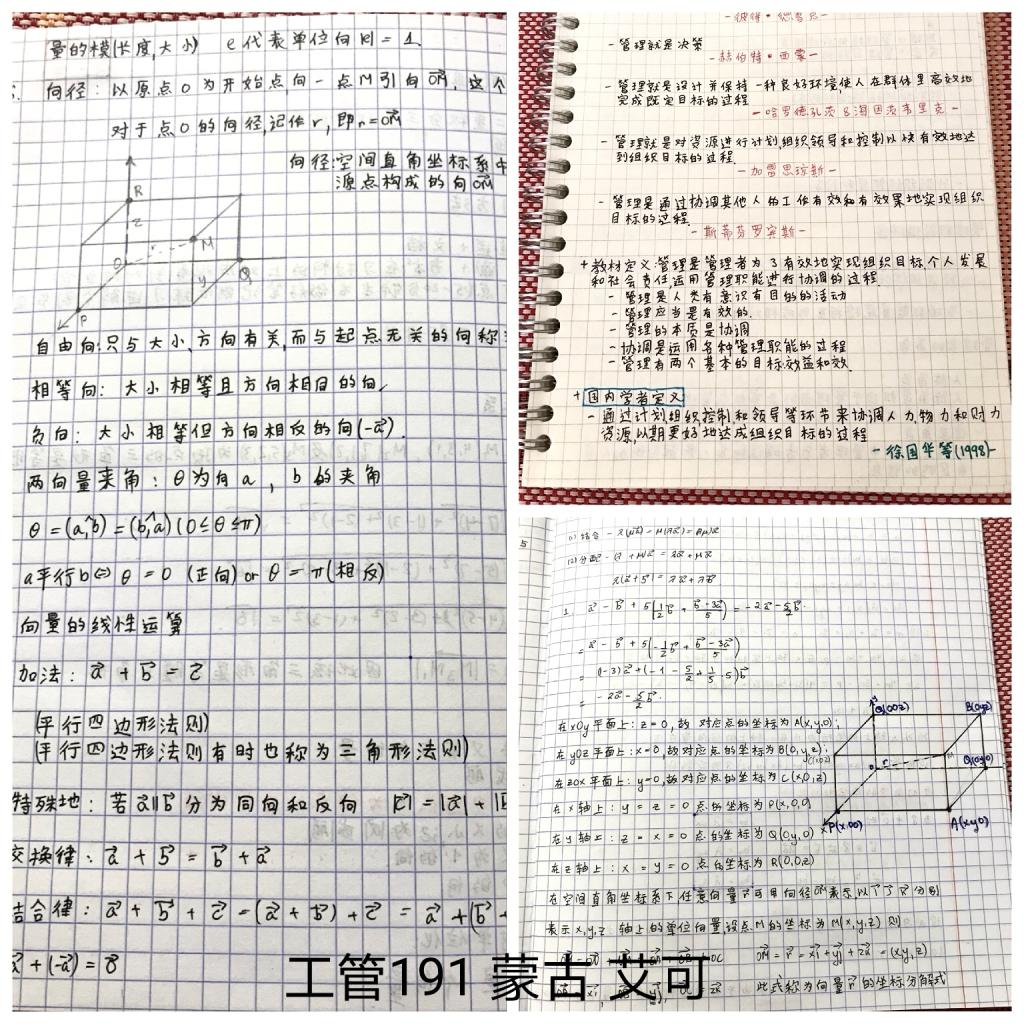 量的模(长度,大小) e代表单位向|e| = 1
向径: 以原点O为开始点,向一点M引向OM, 这个
对于点O的向径,记作r, 即r=OM
向径:空间直角坐标系中
源点构成的向OM
R
z
r
M
O
y
Q
P
自由向:只与大小、方向有关,而与起点无关的向称
相等向: 大小相等且方向相同的向
负向: 大小相等但方向相反的向(-a)
两向量夹角: θ为向a, b的夹角
θ = (a,^b) = (b,^a) (0≤θ≤π)
a平行b⇔ θ = 0 (正向) or θ = π(相反)
向量的线性运算
加法: a + b = c
(平行四边形法则)
(平行四边形法则有时也称为三角形法则)
特殊地: 若a∥b 分为同向和反向 |c| = |a| +
交换律: a + b = b + a
结合律: a + b + c = (a + b) + c = a + (b +
a + (-a) = 0
-彼得·德鲁克-
- 管理就是决策
-赫伯特·西蒙-
- 管理就是设计并保持一种良好环境使人在群体里高效地
完成既定目标的过程
-哈罗德孔茨&海因茨韦里克-
- 管理就是对资源进行计划,组织领导和控制以快有效地达
到组织目标的过程
-加雷思琼斯-
- 管理是通过协调其他人的工作有效和有效果地实现组织
目标的过程
-斯蒂芬罗宾斯-
+教材定义:管理是管理者为了有效地实现组织目标,个人发展
和社会责任,运用管理职能进行协调的过程
- 管理是人类有意识有目的的活动
- 管理应当是有效的.
- 管理的本质是协调
-协调是运用各种管理职能的过程
-管理有两个基本的目标,效益和效.
+ 国内学者定义
- 通过计划,组织控制和领导等环节来协调人力,物力和财力
资源,以期更好地达成组织目标的过程
- 徐国华等(1998)-
(1) 结合 - λ(μa) = μ(λa) = (λμ)a
(2) 分配 - (λ + μ)a = λa + μa
λ(a + b) = λa + λb
1. a - b + 5(-1/2 b + b-3a/5) = -2a - 5/2 b.
= a - b + 5(-1/2 b + b-3a/5)
= (1-3)a + (-1 - 5/2 + 1/5·5)b
= -2a - 5/2 b.
在xOy平面上: z=0, 故对应点的坐标为A(x,y,0);
在yOz平面上: x=0, 故对应点的坐标为B(0,y,z);
在zOx平面上: y=0, 故对应点的坐标为C(x,0,z)
在x轴上: y = z = 0 点的坐标为P(x,0,0)
在y轴上: z = x = 0 点的坐标为Q(0,y,0)
在z轴上: x = y = 0 点的坐标为R(0,0,z)
(00z)
B(0yz)
C(x0z)
M
o
r
Q(0y0)
P(x,00)
A(xy0)
在空间直角坐标系下任意向量r可用向径OM表示,以i j k分别
表示x,y,z轴上的单位向量,设点M的坐标为M(x,y,z)则
OM = r = xi + yj + zk = (xy,z)
此式称为向量r的坐标分解式
工管191 蒙古 艾可